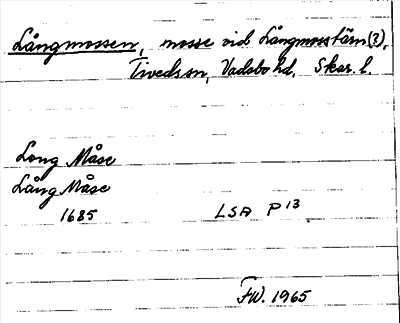 Långmossen, mosse vid Långmosstärn(?),
Tiveds sn, Vadsbo hd, Skar. l.
Long Måse
Lång Måse
1685 LSA P 13
FW. 1965